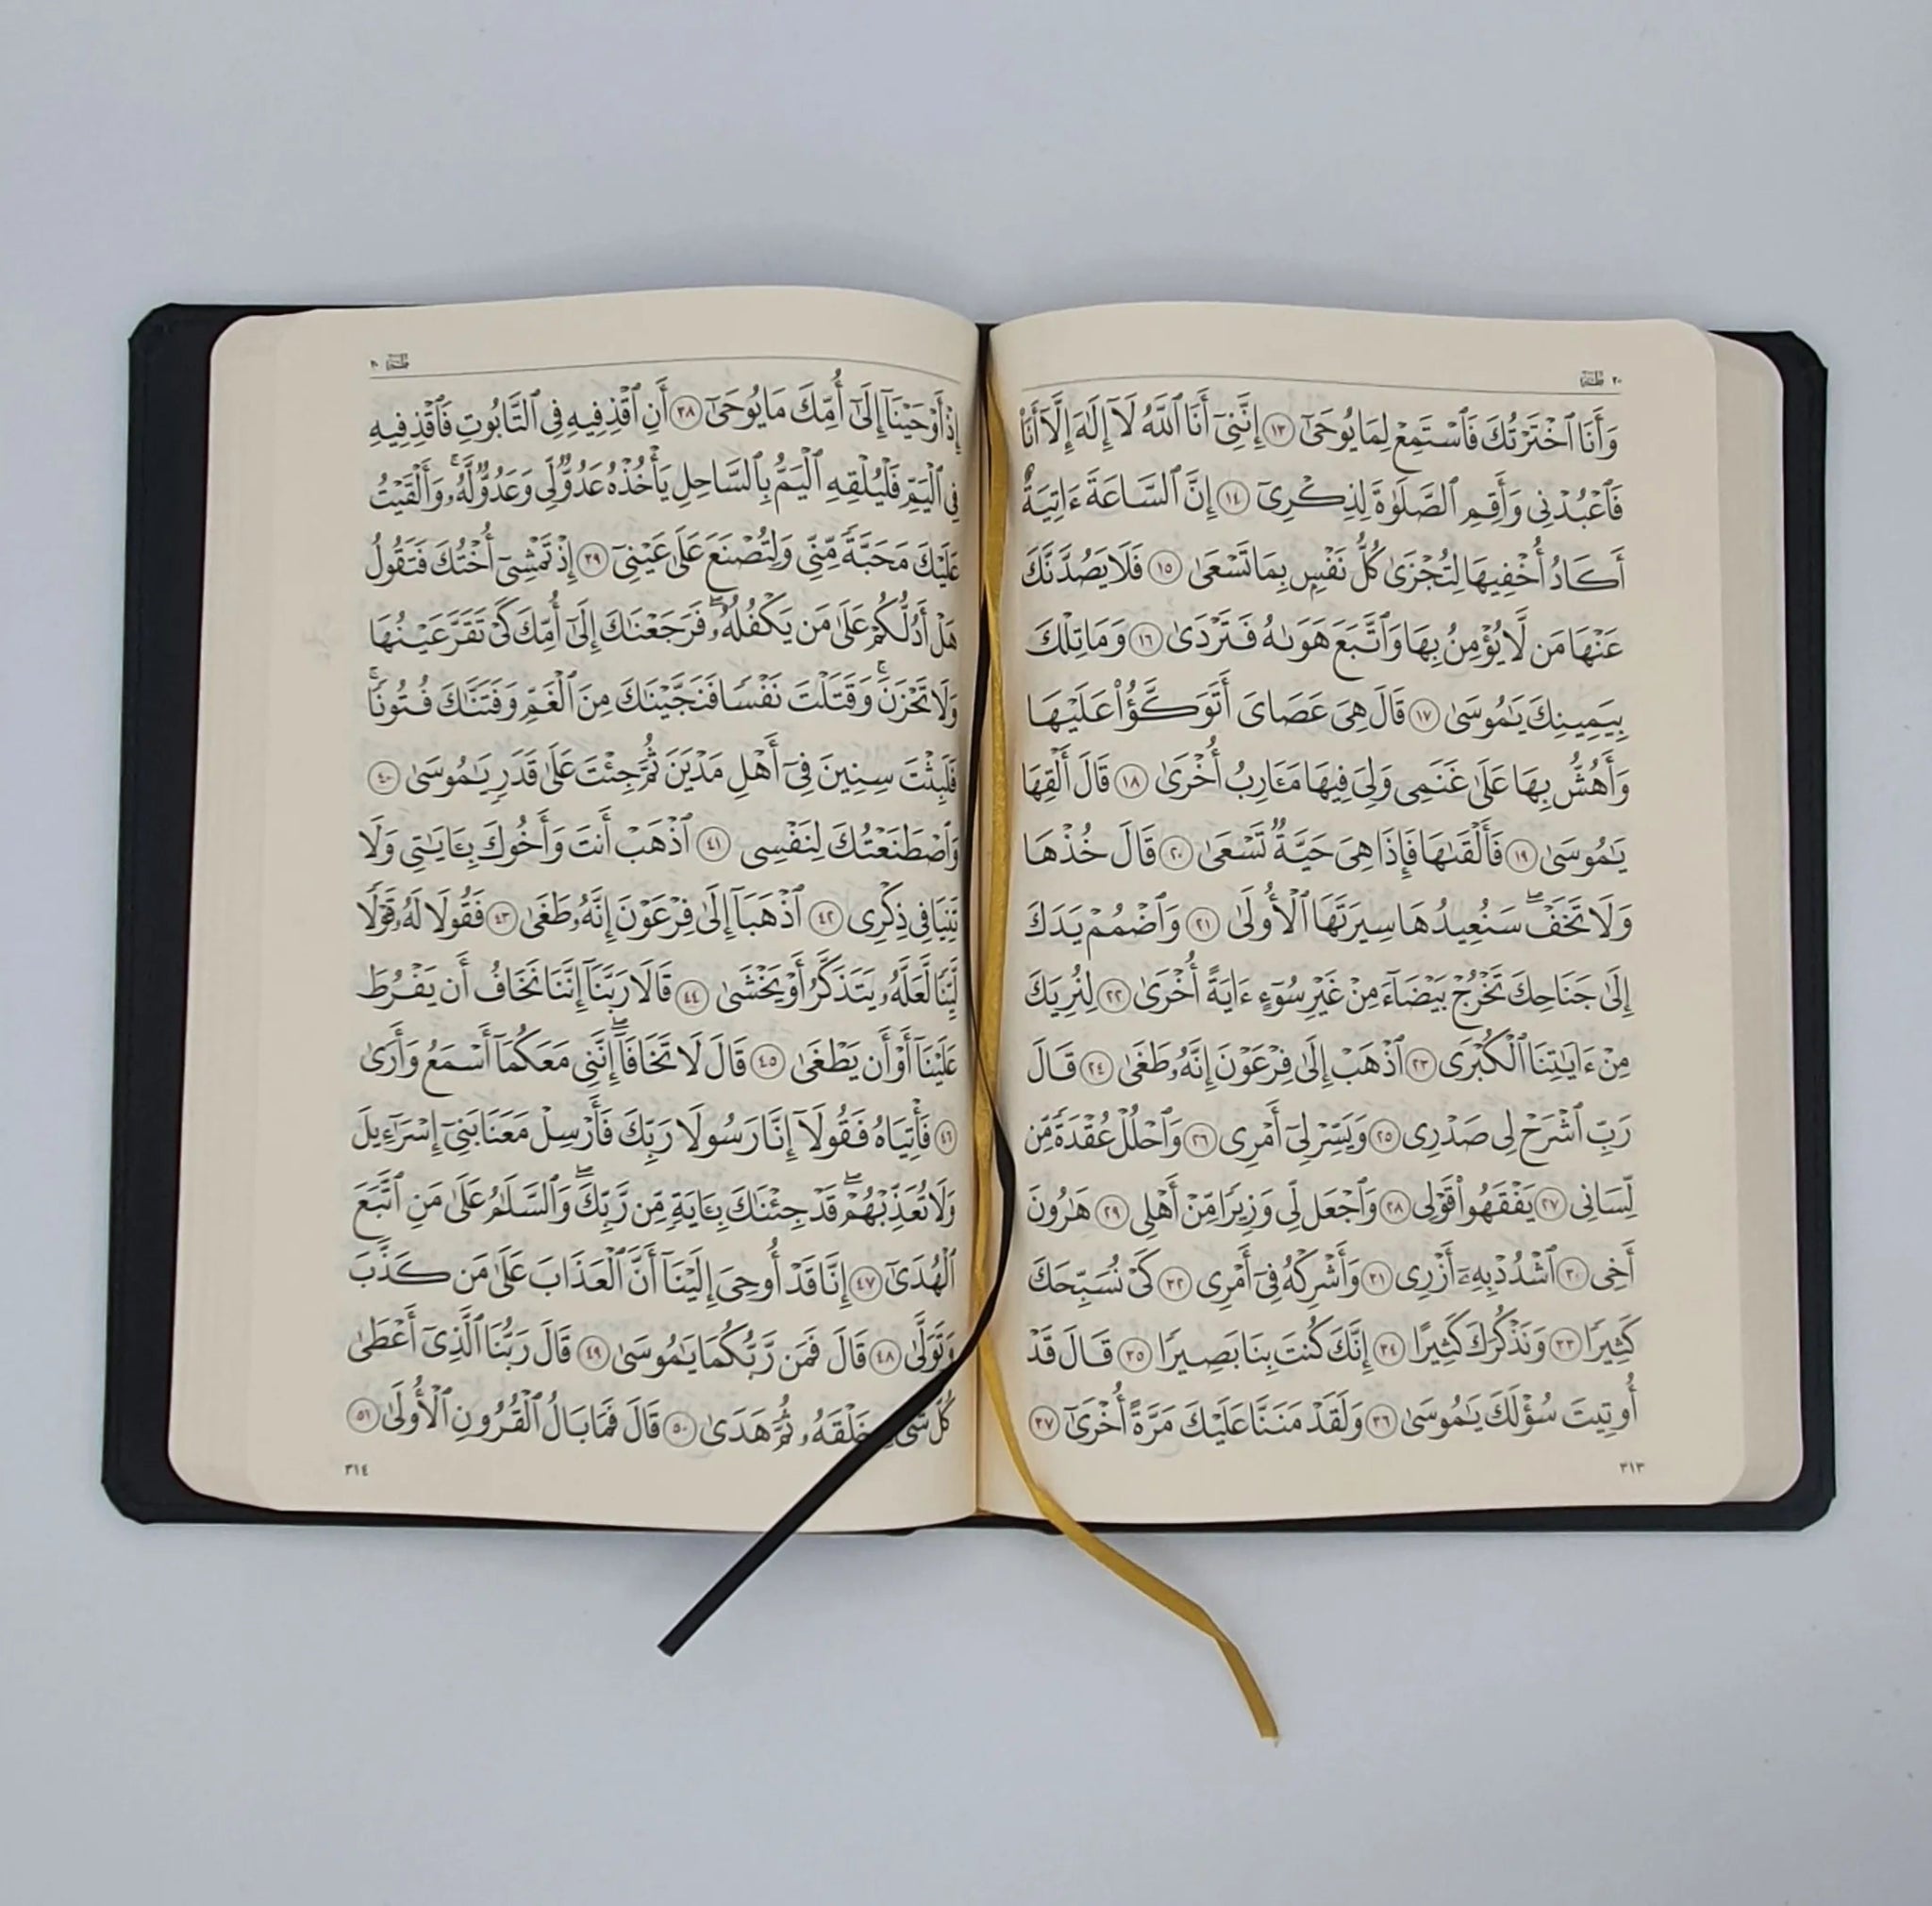 ٢٠ طه
وَأَنَا ٱخْتَرْتُكَ فَٱسْتَمِعْ لِمَا يُوحَىٰٓ ١٣ إِنَّنِىٓ أَنَا ٱللَّهُ لَآ إِلَٰهَ إِلَّآ أَنَا۠
فَٱعْبُدْنِى وَأَقِمِ ٱلصَّلَوٰةَ لِذِكْرِىٓ ١٤ إِنَّ ٱلسَّاعَةَ ءَاتِيَةٌ
أَكَادُ أُخْفِيهَا لِتُجْزَىٰ كُلُّ نَفْسٍۭ بِمَا تَسْعَىٰ ١٥ فَلَا يَصُدَّنَّكَ
عَنْهَا مَن لَّا يُؤْمِنُ بِهَا وَٱتَّبَعَ هَوَىٰهُ فَتَرْدَىٰ ١٦ وَمَا تِلْكَ
بِيَمِينِكَ يَٰمُوسَىٰ ١٧ قَالَ هِىَ عَصَاىَ أَتَوَكَّؤُا۟ عَلَيْهَا
وَأَهُشُّ بِهَا عَلَىٰ غَنَمِى وَلِىَ فِيهَا مَـَٔارِبُ أُخْرَىٰ ١٨ قَالَ أَلْقِهَا
يَٰمُوسَىٰ ١٩ فَأَلْقَىٰهَا فَإِذَا هِىَ حَيَّةٌ تَسْعَىٰ ٢٠ قَالَ خُذْهَا
وَلَا تَخَفْ ۖ سَنُعِيدُهَا سِيرَتَهَا ٱلْأُولَىٰ ٢١ وَٱضْمُمْ يَدَكَ
إِلَىٰ جَنَاحِكَ تَخْرُجْ بَيْضَآءَ مِنْ غَيْرِ سُوٓءٍ ءَايَةً أُخْرَىٰ ٢٢ لِنُرِيَكَ
مِنْ ءَايَٰتِنَا ٱلْكُبْرَى ٢٣ ٱذْهَبْ إِلَىٰ فِرْعَوْنَ إِنَّهُۥ طَغَىٰ ٢٤ قَالَ
رَبِّ ٱشْرَحْ لِى صَدْرِى ٢٥ وَيَسِّرْ لِىٓ أَمْرِى ٢٦ وَٱحْلُلْ عُقْدَةً مِّن
لِّسَانِى ٢٧ يَفْقَهُوا۟ قَوْلِى ٢٨ وَٱجْعَل لِّى وَزِيرًا مِّنْ أَهْلِى ٢٩ هَٰرُونَ
أَخِى ٣٠ ٱشْدُدْ بِهِۦٓ أَزْرِى ٣١ وَأَشْرِكْهُ فِىٓ أَمْرِى ٣٢ كَىْ نُسَبِّحَكَ
كَثِيرًا ٣٣ وَنَذْكُرَكَ كَثِيرًا ٣٤ إِنَّكَ كُنتَ بِنَا بَصِيرًا ٣٥ قَالَ قَدْ
أُوتِيتَ سُؤْلَكَ يَٰمُوسَىٰ ٣٦ وَلَقَدْ مَنَنَّا عَلَيْكَ مَرَّةً أُخْرَىٰٓ ٣٧
٣١٣
طه ٢٠
إِذْ أَوْحَيْنَآ إِلَىٰٓ أُمِّكَ مَا يُوحَىٰٓ ٣٨ أَنِ ٱقْذِفِيهِ فِى ٱلتَّابُوتِ فَٱقْذِفِيهِ
فِى ٱلْيَمِّ فَلْيُلْقِهِ ٱلْيَمُّ بِٱلسَّاحِلِ يَأْخُذْهُ عَدُوٌّ لِّى وَعَدُوٌّ لَّهُۥ ۚ وَأَلْقَيْتُ
عَلَيْكَ مَحَبَّةً مِّنِّى وَلِتُصْنَعَ عَلَىٰ عَيْنِىٓ ٣٩ إِذْ تَمْشِىٓ أُخْتُكَ فَتَقُولُ
هَلْ أَدُلُّكُمْ عَلَىٰ مَن يَكْفُلُهُۥ ۖ فَرَجَعْنَٰكَ إِلَىٰٓ أُمِّكَ كَىْ تَقَرَّ عَيْنُهَا
وَلَا تَحْزَنَ ۚ وَقَتَلْتَ نَفْسًا فَنَجَّيْنَٰكَ مِنَ ٱلْغَمِّ وَفَتَنَّٰكَ فُتُونًا ۚ
فَلَبِثْتَ سِنِينَ فِىٓ أَهْلِ مَدْيَنَ ثُمَّ جِئْتَ عَلَىٰ قَدَرٍ يَٰمُوسَىٰ ٤٠
وَٱصْطَنَعْتُكَ لِنَفْسِى ٤١ ٱذْهَبْ أَنتَ وَأَخُوكَ بِـَٔايَٰتِى وَلَا
تَنِيَا فِى ذِكْرِى ٤٢ ٱذْهَبَآ إِلَىٰ فِرْعَوْنَ إِنَّهُۥ طَغَىٰ ٤٣ فَقُولَا لَهُۥ قَوْلًا
لَّيِّنًا لَّعَلَّهُۥ يَتَذَكَّرُ أَوْ يَخْشَىٰ ٤٤ قَالَا رَبَّنَآ إِنَّنَا نَخَافُ أَن يَفْرُطَ
عَلَيْنَآ أَوْ أَن يَطْغَىٰ ٤٥ قَالَ لَا تَخَافَآ ۖ إِنَّنِى مَعَكُمَآ أَسْمَعُ وَأَرَىٰ
٤٦ فَأْتِيَاهُ فَقُولَآ إِنَّا رَسُولَا رَبِّكَ فَأَرْسِلْ مَعَنَا بَنِىٓ إِسْرَٰٓءِيلَ
وَلَا تُعَذِّبْهُمْ ۖ قَدْ جِئْنَٰكَ بِـَٔايَةٍ مِّن رَّبِّكَ ۖ وَٱلسَّلَٰمُ عَلَىٰ مَنِ ٱتَّبَعَ
ٱلْهُدَىٰٓ ٤٧ إِنَّا قَدْ أُوحِىَ إِلَيْنَآ أَنَّ ٱلْعَذَابَ عَلَىٰ مَن كَذَّبَ
وَتَوَلَّىٰ ٤٨ قَالَ فَمَن رَّبُّكُمَا يَٰمُوسَىٰ ٤٩ قَالَ رَبُّنَا ٱلَّذِىٓ أَعْطَىٰ
كُلَّ شَىْءٍ خَلْقَهُۥ ثُمَّ هَدَىٰ ٥٠ قَالَ فَمَا بَالُ ٱلْقُرُونِ ٱلْأُولَىٰ ٥١
٣١٤